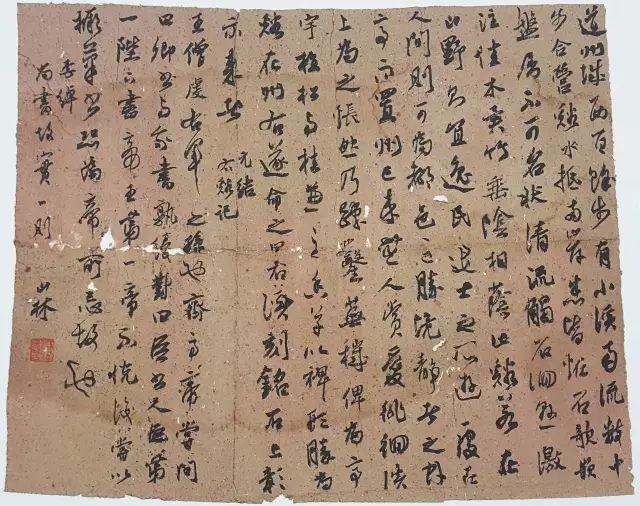 道州城西百餘步有小溪南流數十
步合營谿水抵兩岸悉皆怪石欹嵌
盤屈不可名狀清流觸石洄懸激
注佳木異竹垂陰相蔭此谿若在
山野則宜逸民退士之所遊處在
人間則可為都邑之勝境靜者之林
亭而置州已來無人賞愛徘徊溪
上為之悵然乃疎鑿蕪穢俾為亭
宇植松與桂兼之香草以裨形勝為
谿在州右遂命之曰右溪刻銘石上彰
示來者
元結
右谿記
王僧虔右軍之孫也齊高帝嘗問
曰卿書與我書孰優對曰臣書人臣第
一陛下書帝王第一帝不悅後嘗以
撅筆書恐為帝所忌故也
李綽
尚書故實一則
山林